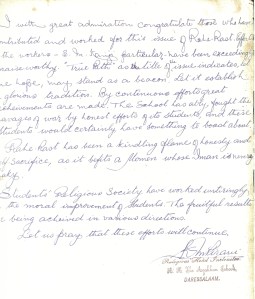 I with great admiration congratulate those who have
contributed and worked for this issue of Rahe Rast.
the workers - in particular have been exceeding
praiseworthy. "True Path" as the title of issue indicates, let
us hope, may stand as a beacon. Let it establish
glorious tradition. By continuous efforts great
achievements are made. The School has ably fought the
ravages of war by honest efforts of its students and these
students would certainly have something to boast about.
Rahe Rast has been a kindling flame of honesty and
sacrifice, as it befits a Momen whose Iman
Students' Religious Society have worked untiringly
the moral improvement of students. The fruitful results
being achieved in various directions.
Let us pray that these efforts will continue.
DARESSALAAM.